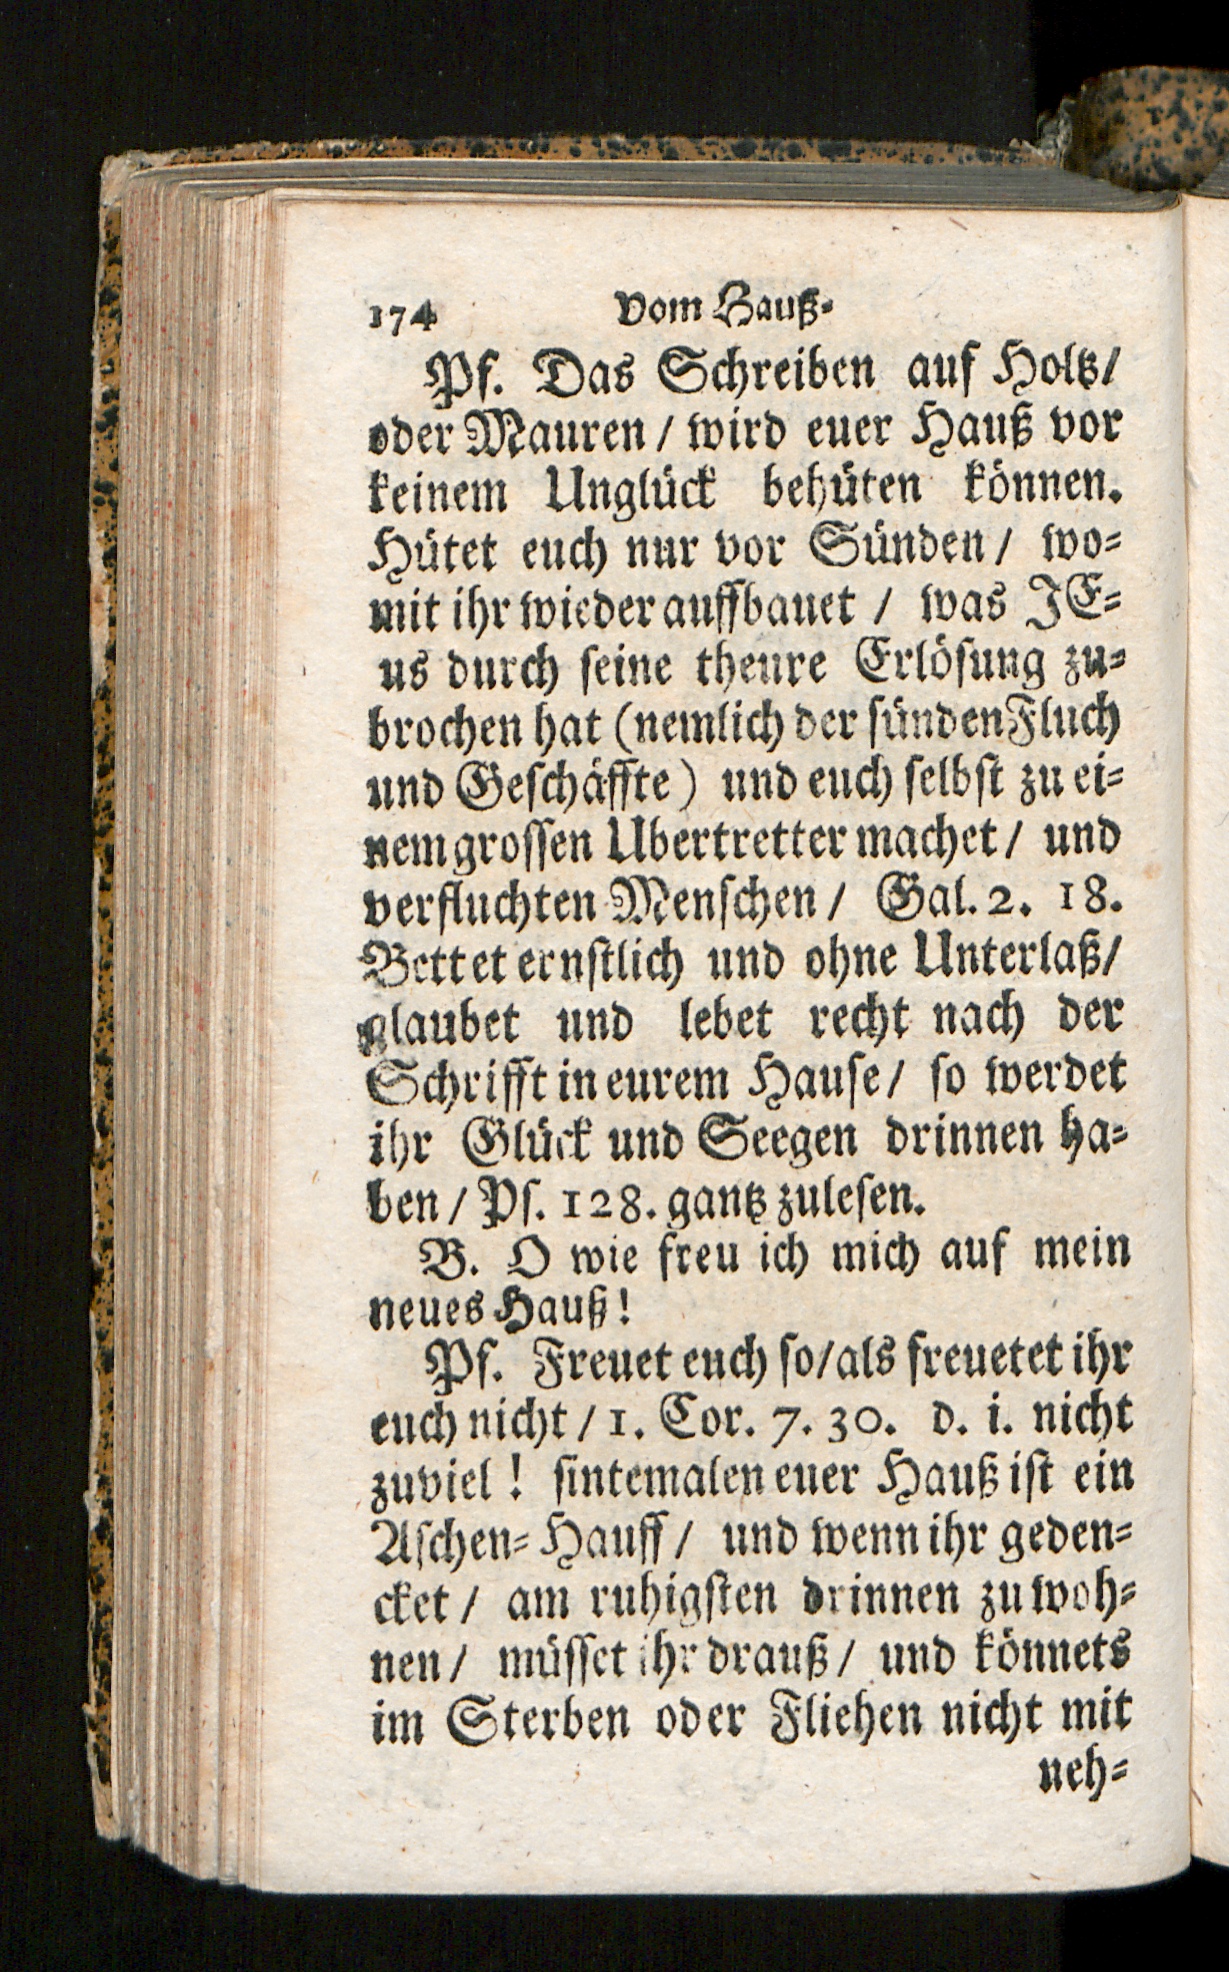 174 Vom Hauß-
Pf. Das Schreiben auf Holtz/
oder Mauren / wird euer Hauß vor
keinem Unglück behüten können.
Hütet euch nur vor Sünden / wo-
mit ihr wieder auffbauet / was JE-
us durch seine theure Erlösung zu-
brochen hat (nemlich der sündenFluch
und Geschäffte) und euch selbst zu ei-
nem grossen Ubertretter machet / und
verfluchten Menschen / Gal. 2. 18.
Bettet ernstlich und ohne Unterlaß/
glaubet und lebet recht nach der
Schrifft in eurem Hause / so werdet
ihr Glück und Seegen drinnen ha-
ben / Ps. 128. gantz zulesen.
B. O wie freu ich mich auf mein
neues Hauß!
Pf. Freuet euch so/als freuetet ihr
euch nicht / 1. Cor. 7. 30. d. i. nicht
zuviel ! sintemalen euer Hauß ist ein
Aschen-Hauff / und wenn ihr geden-
cket / am ruhigsten drinnen zu woh-
nen / müsset ihr drauß / und könnets
im Sterben oder Fliehen nicht mit
neh-